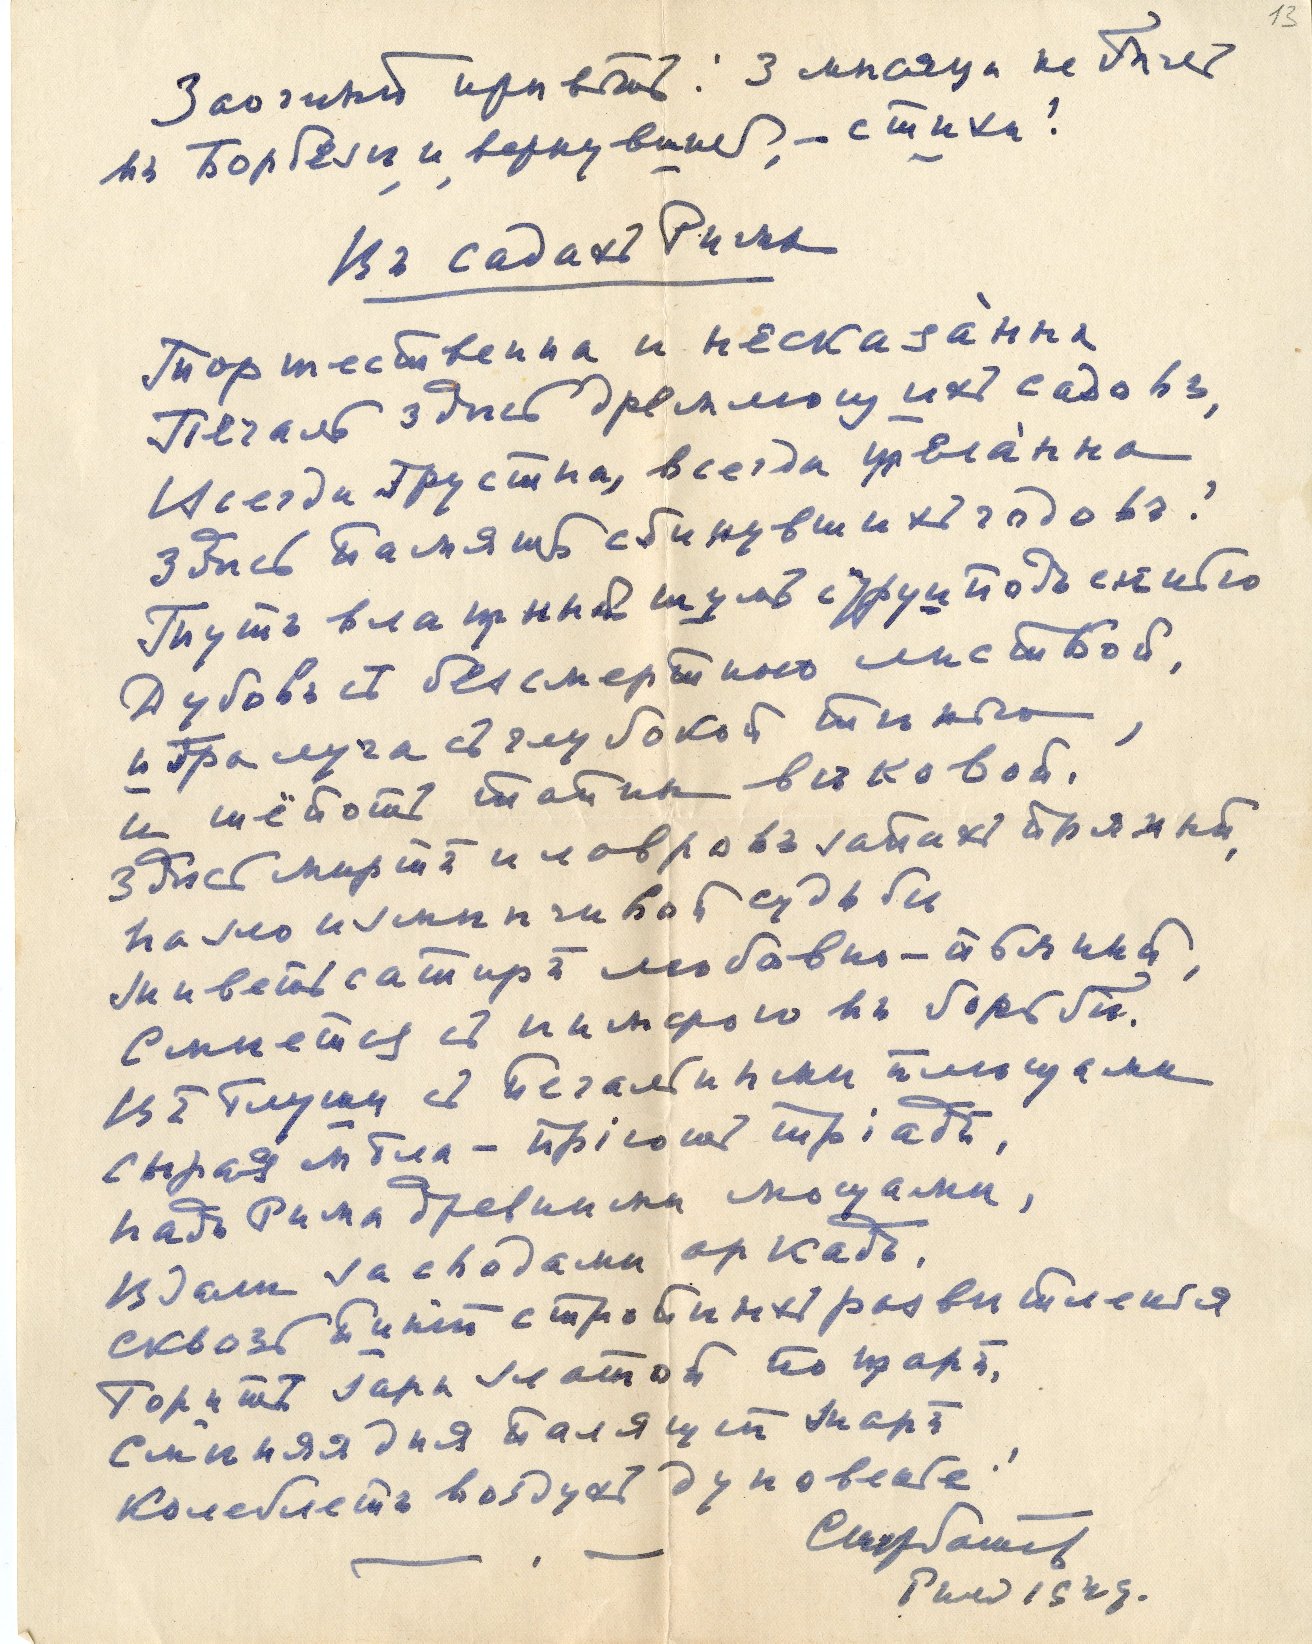 13
Заочный привѣтъ! 3 мѣсяца не былъ
въ Борбезѣ и, вернувшись, – стихи!
Въ садахъ Рима
Торжественна и несказа́нна
Печаль здѣсь дремлющихъ садовъ,
Всегда грустна, всегда жела́нна
Здѣсь память сгинувшихъ годовъ!
Тутъ влажный шумъ струи подъ сѣнью
Дубовъ съ безсмертною листвой,
и гра луча съ глубокой тѣнью,
и шёпотъ тотъ вѣковой.
Здѣсь миртъ и лавровъ запахъ пряный,
на зло измѣнчивой судьбы
живетъ сатиръ любовно-пьяный,
Смѣется съ нимфою въ борьбѣ.
Въ глуши съ печальными плющами
сырая мгла – пріютъ тріадъ,
надъ Рима древними мощами,
Вдали за сводами аркадъ.
Сквозь пиній стройныхъ развѣтленья
Горитъ заря златой пожаръ,
Смѣняя дня палящій жаръ
Колеблетъ воздухъ дуновенье!
Скарбатовъ
Римъ